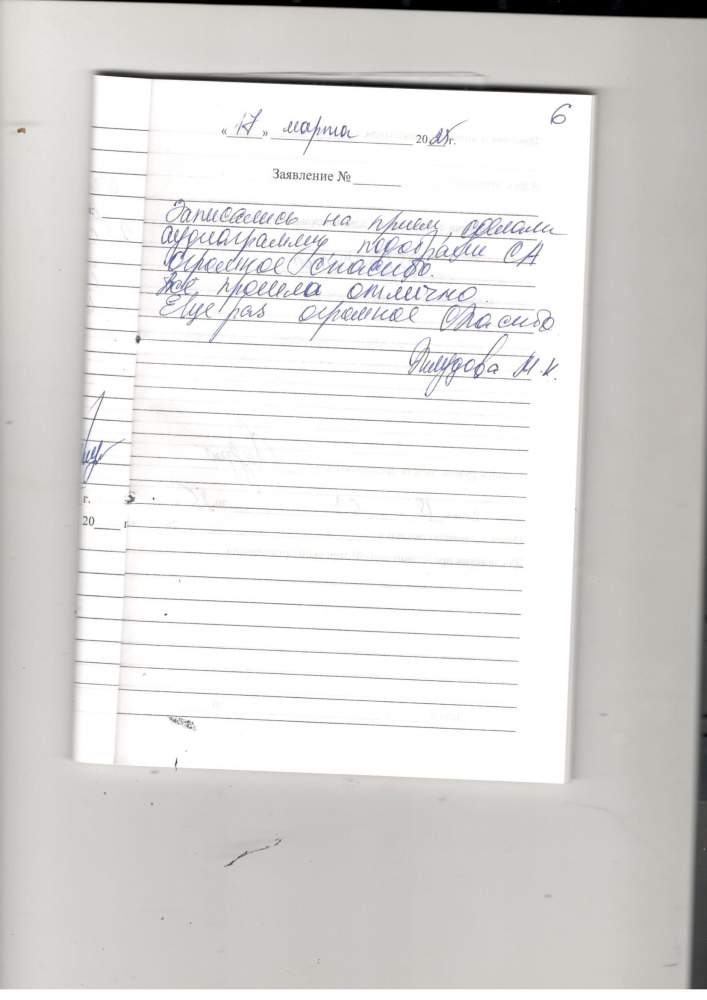 6
« 17 » марта 2025 г.
Заявление № ______
Записались на прием, сделали
аудиограмму, подобрали СА
Огромное спасибо.
Всё прошла отлично.
Еще раз огромное спасибо
М.К.
г.
20____ г